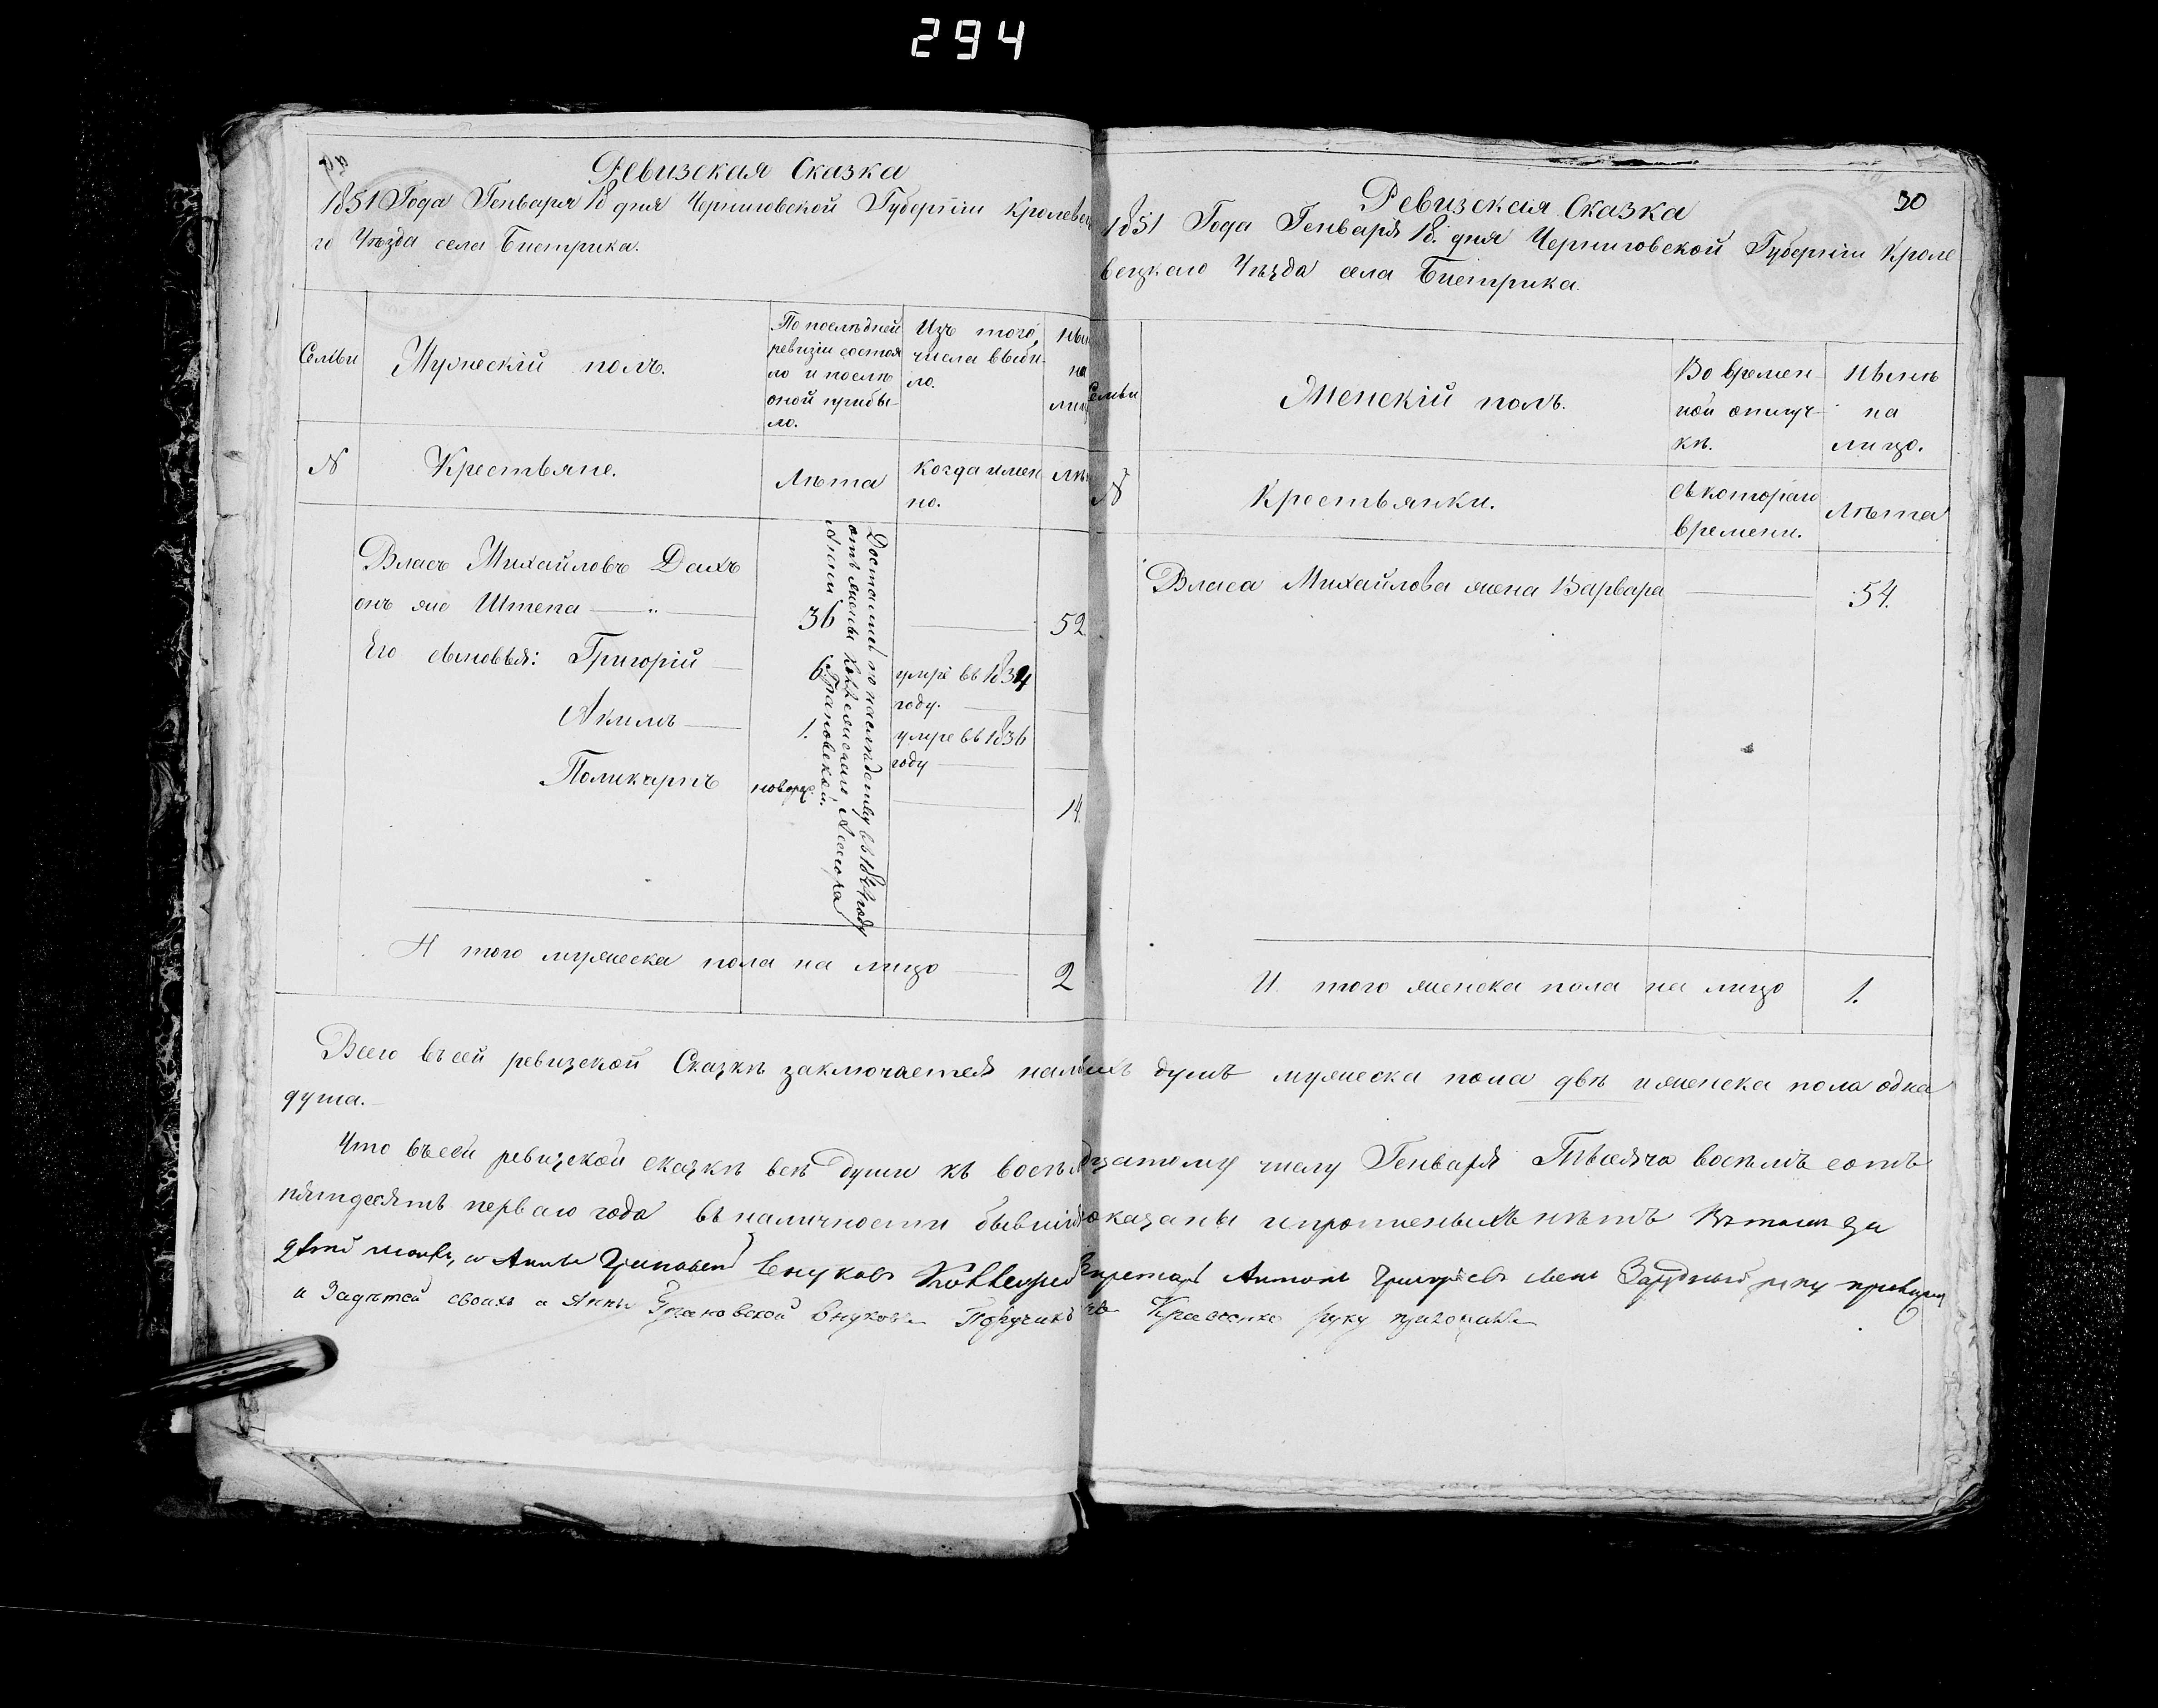 294
Ревизская Сказка
1851 Года Генваря 18 дня Черниговской Губерніи Кролевец
го Уѣзда села Быстрика.
Семьи
Мужескій полъ.
По послѣдней
ревизіи состоя
ло и послѣ
оной прибы-
ло.
Изъ того
числа выбы-
ло.
Нын
на
лиц
N
Крестьяне.
Лѣта
Когда имен
но.
Лѣт
Власъ Михайловъ Дахъ
онъ же Штепа
36
52.
Его сыновья: Григорій
6
умре въ 1834
году.
Акимъ
1.
умре въ 1836
году
Поликарпъ
новорож.
14.
Достались по наслѣдству въ 1844 году
отъ жены Коллежскаго Асесора
Анны Грановской.
И того мужеска пола на лицо
2
Ревизская Сказка
30
1851 Года Генваря 18. дня Черниговской Губерніи Кроле
вецкаго Уѣзда села Быстрика.
Семьи
Женскій полъ.
Во времен-
ной отлуч-
кѣ.
Нынѣ
на
лицо.
N
Крестьянки.
Съ котораго
времени.
Лѣта
Власа Михайлова жена Варвара
54.
И того женска пола на лицо
1.
Всего въ сей ревизской Сказкѣ заключается наличныхъ душъ мужеска пола двѣ и женска пола одна
душа.
Что въ сей ревизской сказкѣ всѣ души къ восемнадцатому числу Генваря Тысяча восемь сотъ
пятдесятъ перваго года въ наличности бывшія показаны и пропиеныхъ нѣтъ Въ томъ за
Анны Грановской Внукъ Коллежскій Секретарь Антонъ Григорьевъ сынъ Зарудный руку приложилъ
и За дѣтей своихъ а Анны Грановской Внуковъ Поручикъ руку приложилъ